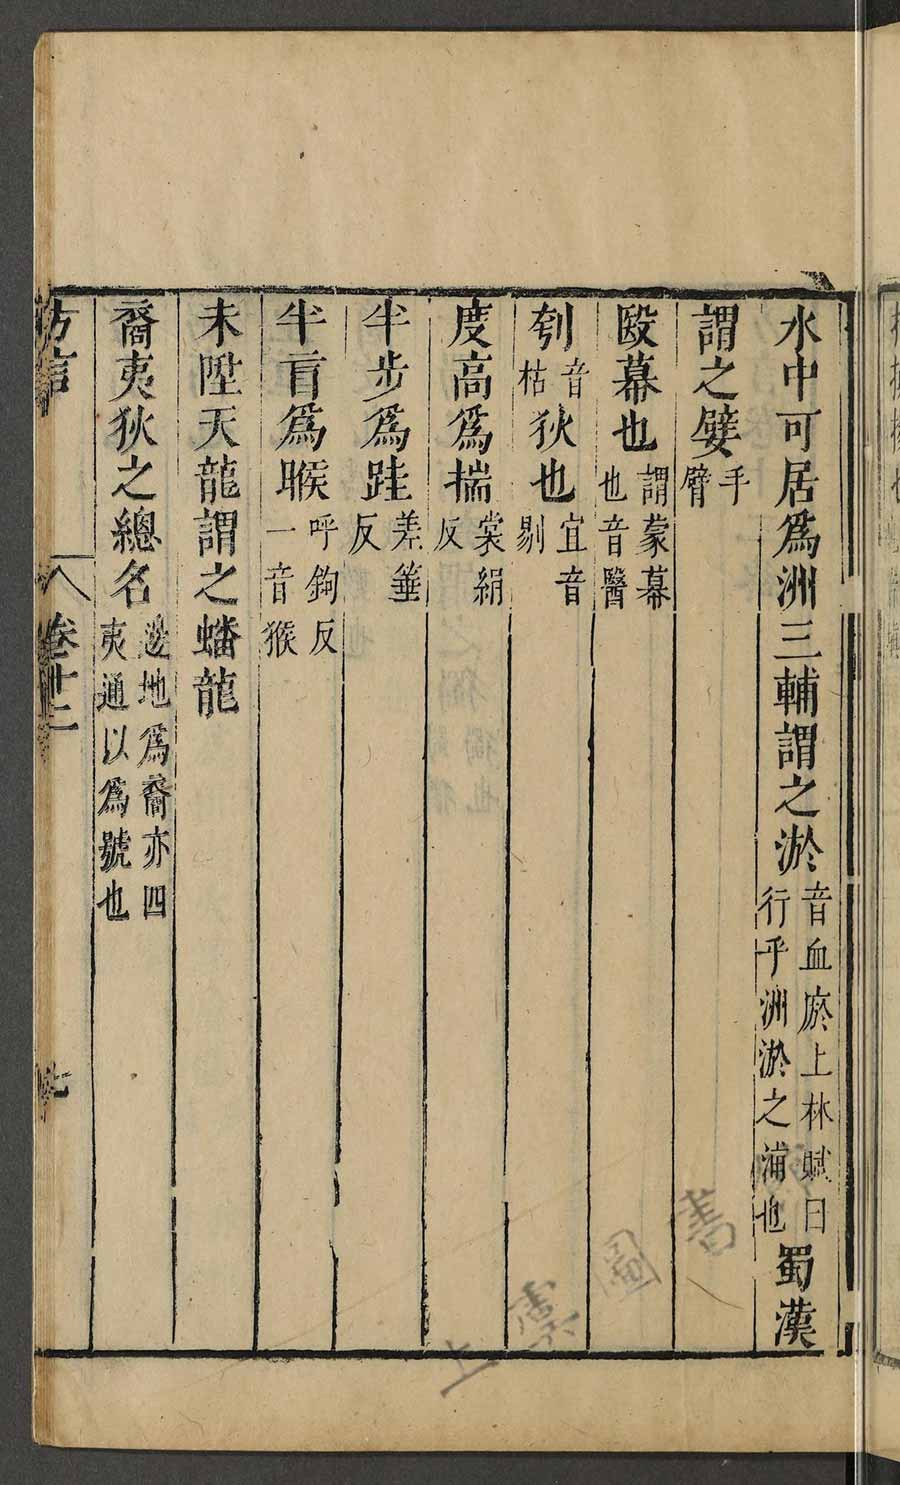 水中可居爲洲三輔謂之淤音血瘀上林賦曰行乎洲淤之浦也蜀漢
謂之嬖手臂
殹幕也謂蒙幕也音醫
刳音枯狄也宜音剔
度高爲揣裳絹反
半步爲跬差箠反
半盲爲睺呼鉤反一音猴
未陞天龍謂之蟠龍
裔夷狄之總名邊地爲裔亦四夷通以爲號也
方言 卷十二 七
上 圖書